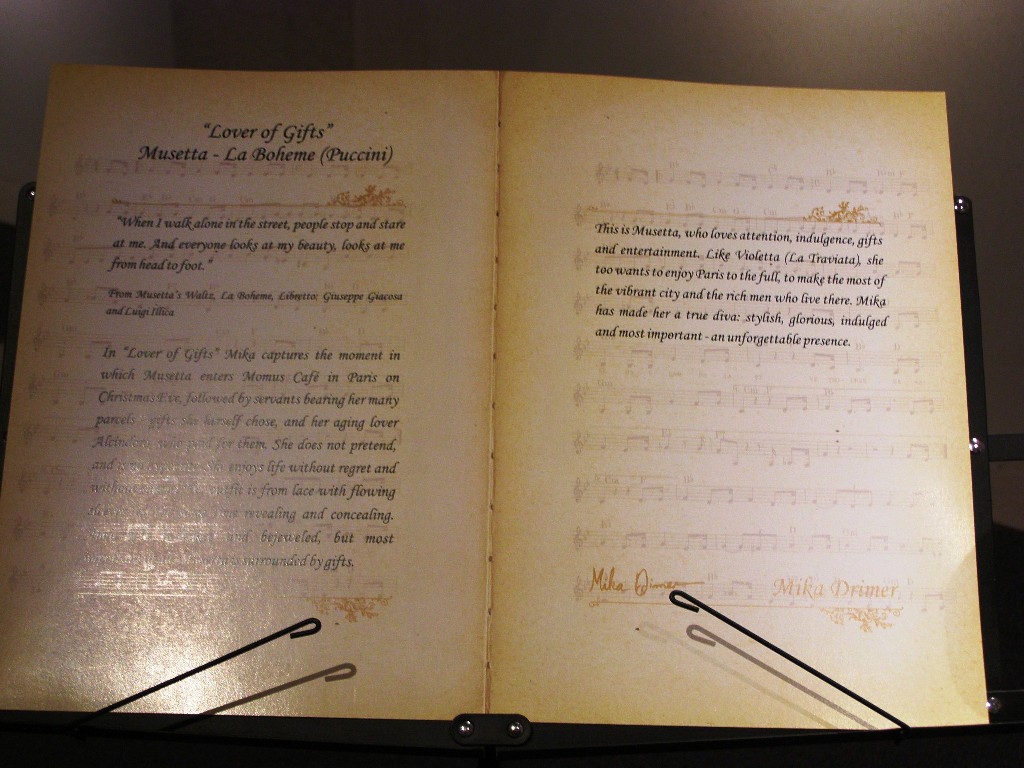 "Lover of Gifts"
Musetta - La Boheme (Puccini)
"When I walk alone in the street, people stop and stare
at me. And everyone looks at my beauty, looks at me
from head to foot."
From Musetta's Waltz, La Boheme, Libretto: Giuseppe Giacosa
and Luigi Illica
In "Lover of Gifts" Mika captures the moment in
which Musetta enters Momus Café in Paris on
Christmas Eve, followed by servants bearing her many
parcels - gifts she herself chose, and her aging lover
Alcindoro, who paid for them. She does not pretend,
and is no She enjoys life without regret and
without outfit is from lace with flowing
revealing and concealing.
and bejeweled, but most
surrounded by gifts.
This is Musetta, who loves attention, indulgence, gifts
and entertainment. Like Violetta (La Traviata), she
too wants to enjoy Paris to the full, to make the most of
the vibrant city and the rich men who live there. Mika
has made her a true diva: stylish, glorious, indulged
and most important - an unforgettable presence.
Mika Drimer
Mika Drimer